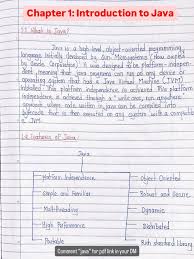 Chapter 1: Introduction to Java
1.1 What is Java?
Java is a high level, object-oriented programming
language initially developed by Sun Microsystems (now owned
by Oracle Corporation). It was designed to be platform-indepen-
dent, meaning that Java programs can run on any device or
operating system that has a Java Virtual Machine (JVM)
installed. This platform independence is achieved
is achieved through a "write once, run anywhere"
approach, where
bytecode that is then executed on any system with a compatible
JVM.
1.2 Features of Java:
Java
Platform Independence
Object Oriented
Simple and Familiar
Robust and Secure
Multi-threading
Dynamic
High Performance
Distributed
Portable
Rich standard library
Comment "java" for pdf link in your DM